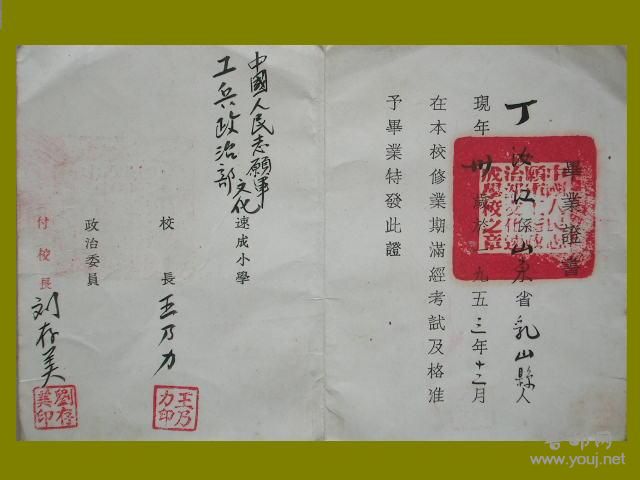 畢業證書
丁汝江係山東省乳山縣人
現年卅歲於一九五三年十二月
在本校修業期滿經考試及格准
予畢業特發此證
中國人民志願軍
工兵政治部文化速成小學
校長王乃力
王乃力印
政治委員
付校長刘存美
劉存美印
www.youj.net